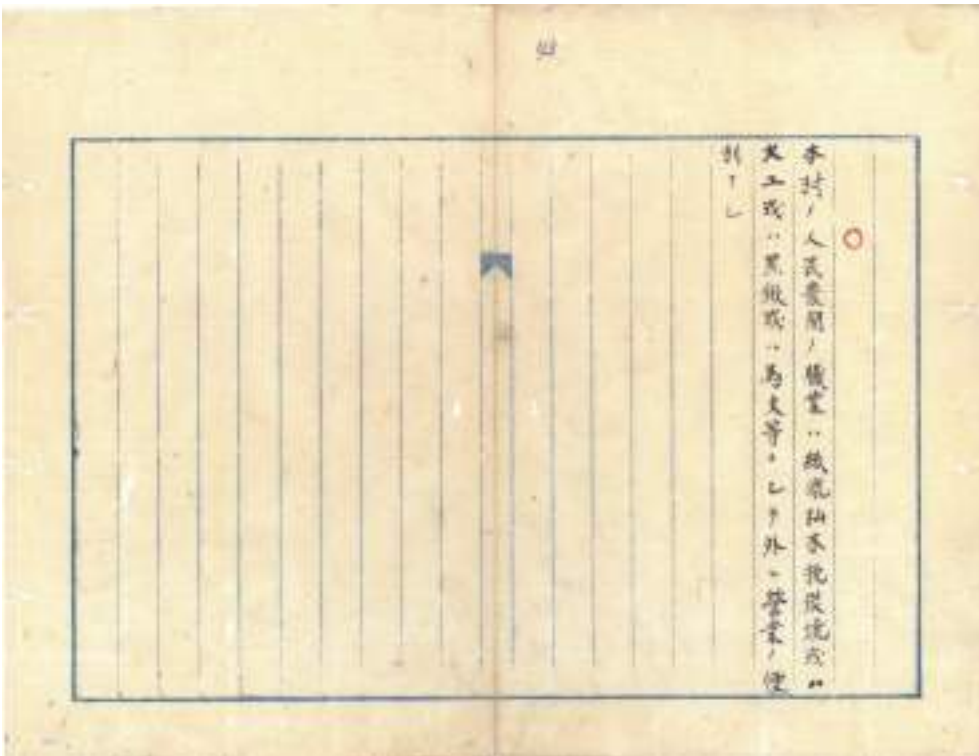 本村ノ人民農間ノ職業ハ紙漉杣木挽炭焼或ハ
大工或ハ黒鍬或ハ馬夫等ニシテ外ニ営業ノ便
利ナシ